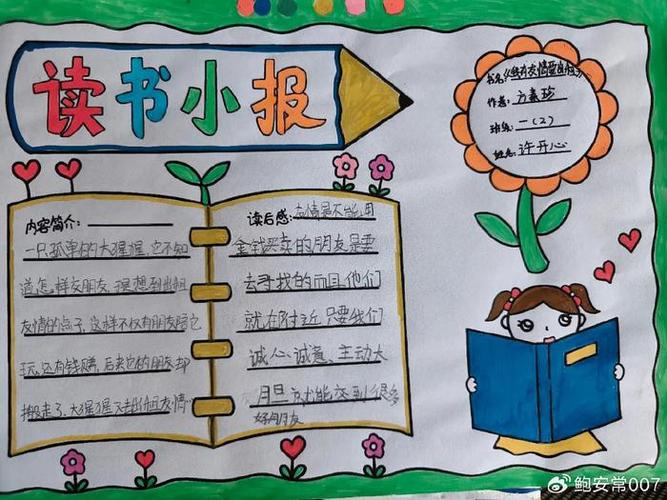 读书小报
书名:《没有友情要出租》
作者:方素珍
班级:一(2)
姓名:许开心
内容简介:
一只孤单的大猩猩,它不知
道怎样交朋友,提想到出租
友情的点子,这样不仅有朋友陪它
玩,还有钱赚,后来它的朋友却
搬走了,大猩猩又去出租友情
读后感:友情是不能用
金钱买卖的朋友是要
去寻找的而且他们
就在附近,只要我们
诚心、诚意、主动大
月旦就能交到很多
好朋友
鲍安常007